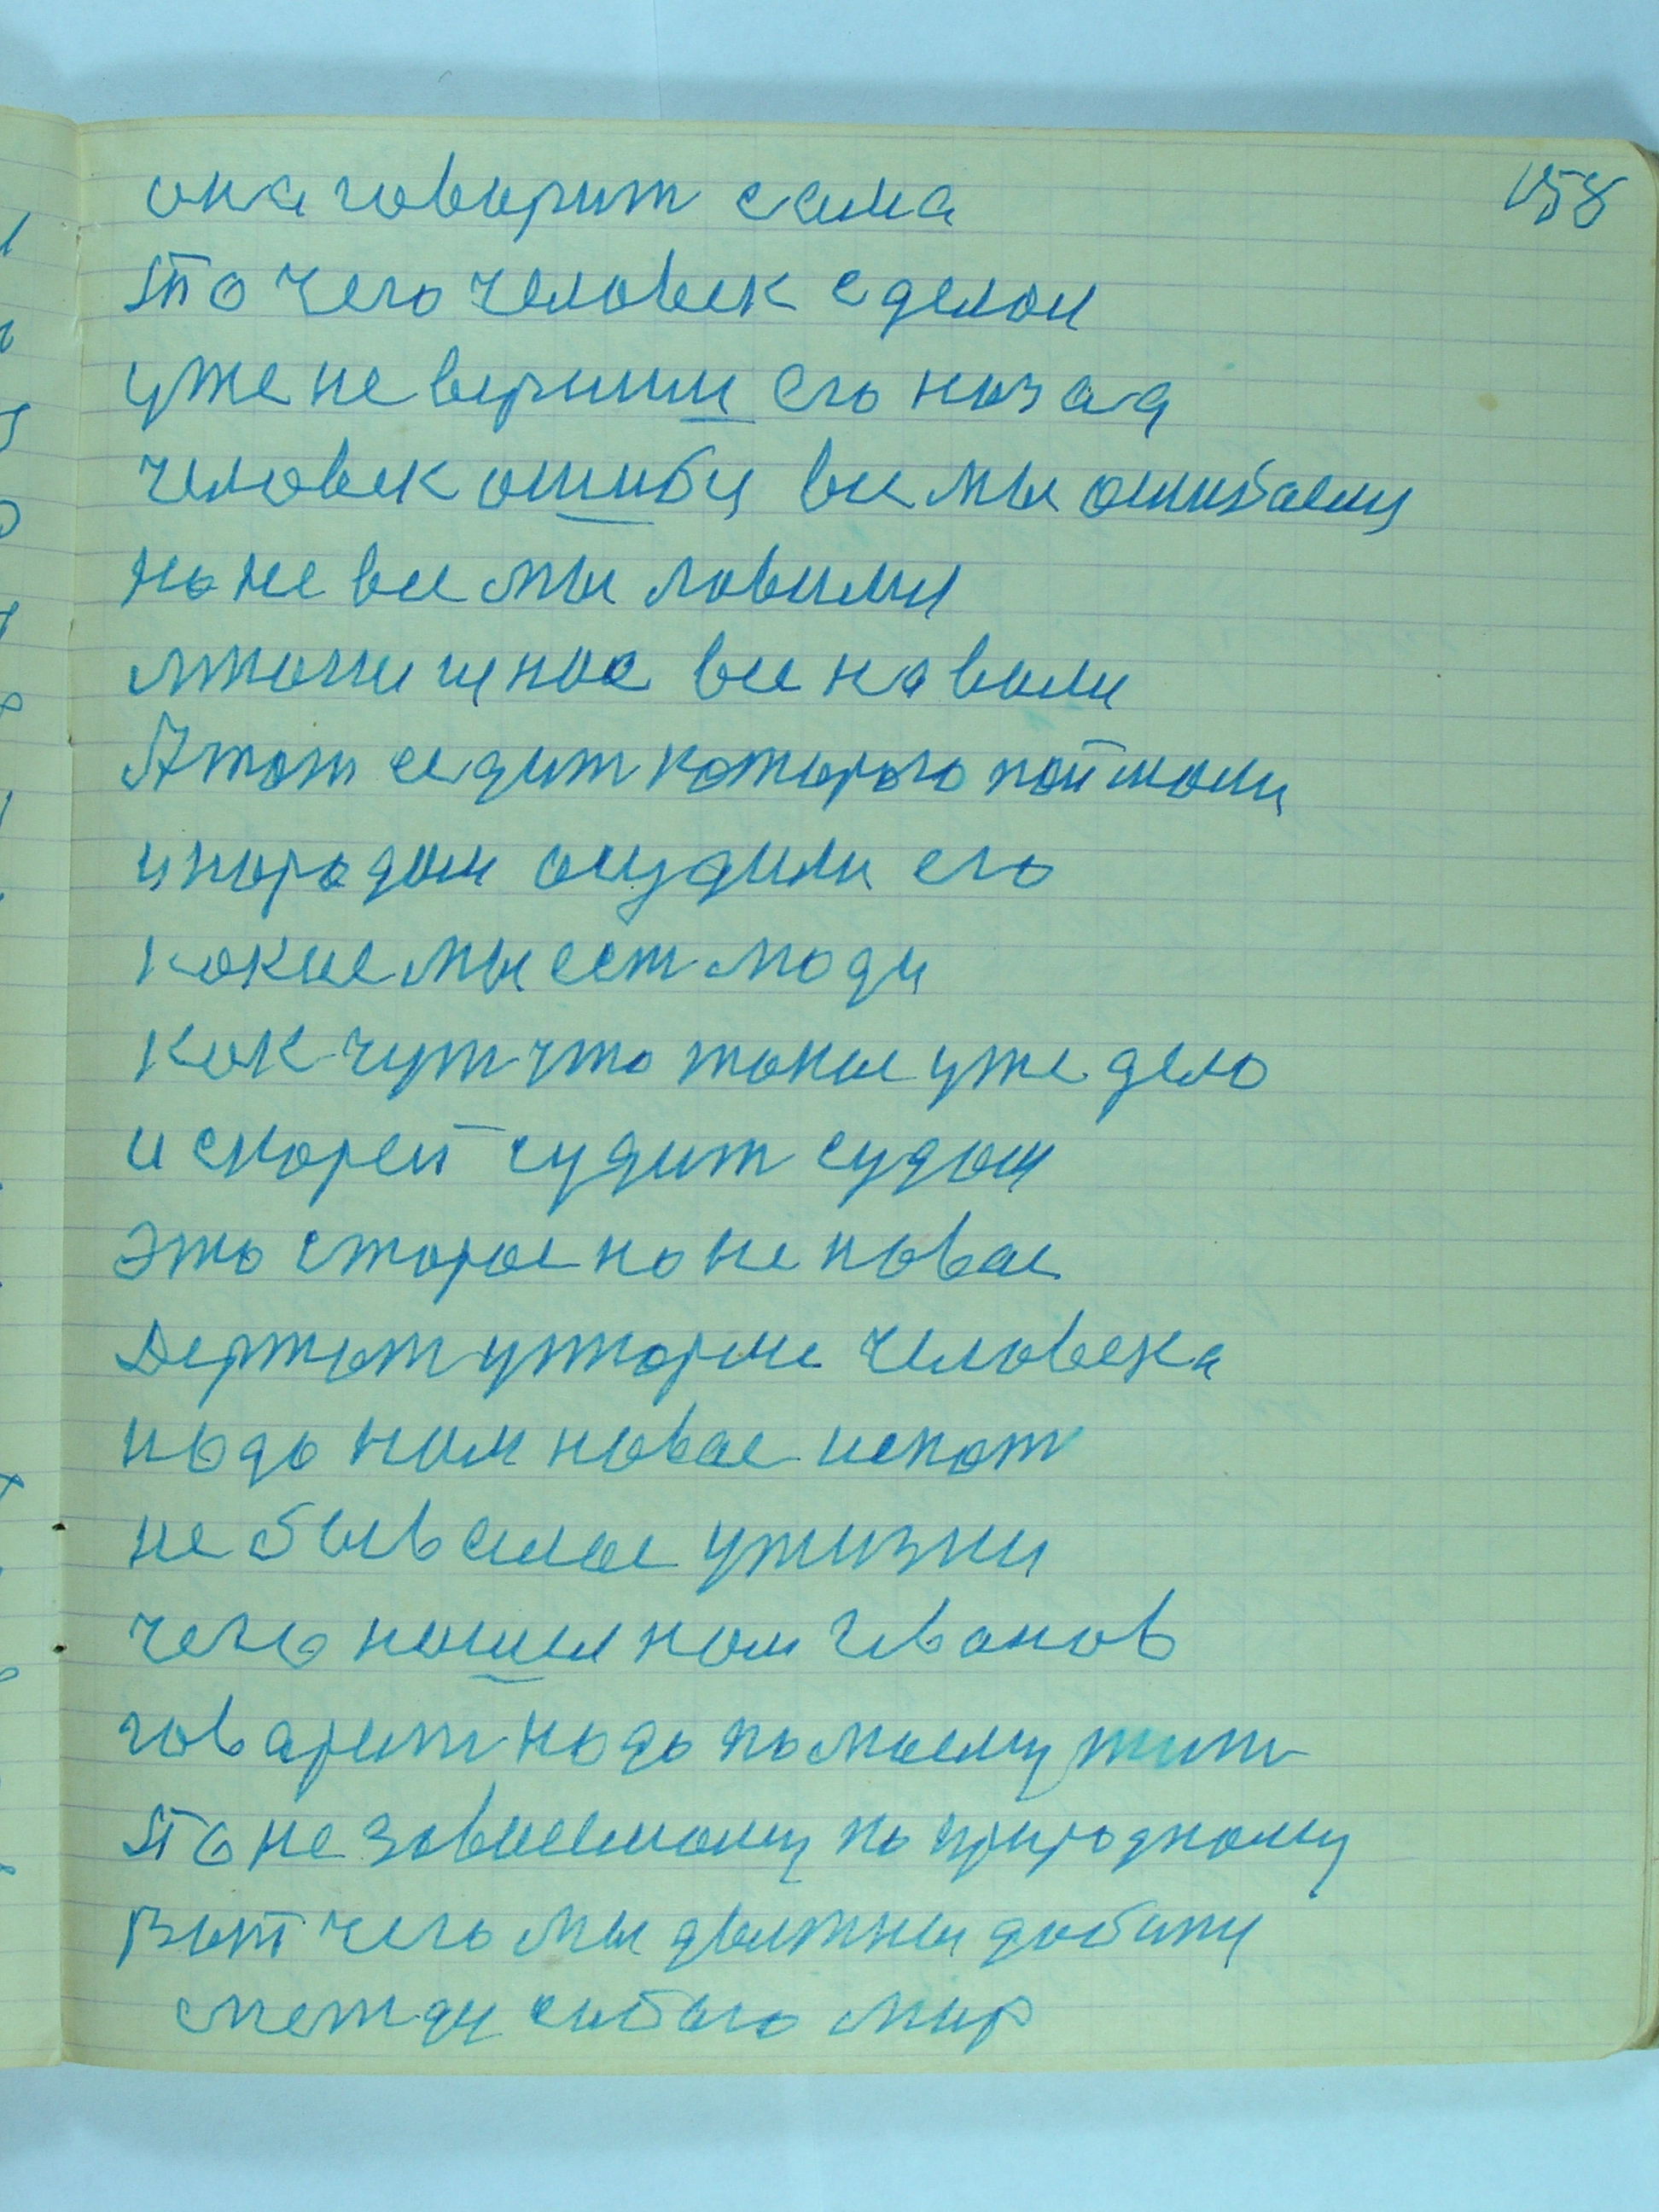 158
она говорит сама
то чего человек сделал
уже не верниш его назад
человек ошибу все мы ошибаемц
но не все мы ловими
многи цнас все на воли
А тот седит которого поймали
и породом осудили его
какие мы ест люди
как чут что такое уже дело
и скорей судит судом
это старое но не новое
Держат утюрме человека
надо нам новое искат
не бывалое ужизни
чего нашел нам Иванов
говарит надо по моему жит
то не зависемому по природному
Вот чего мы должны добити
между собого мир